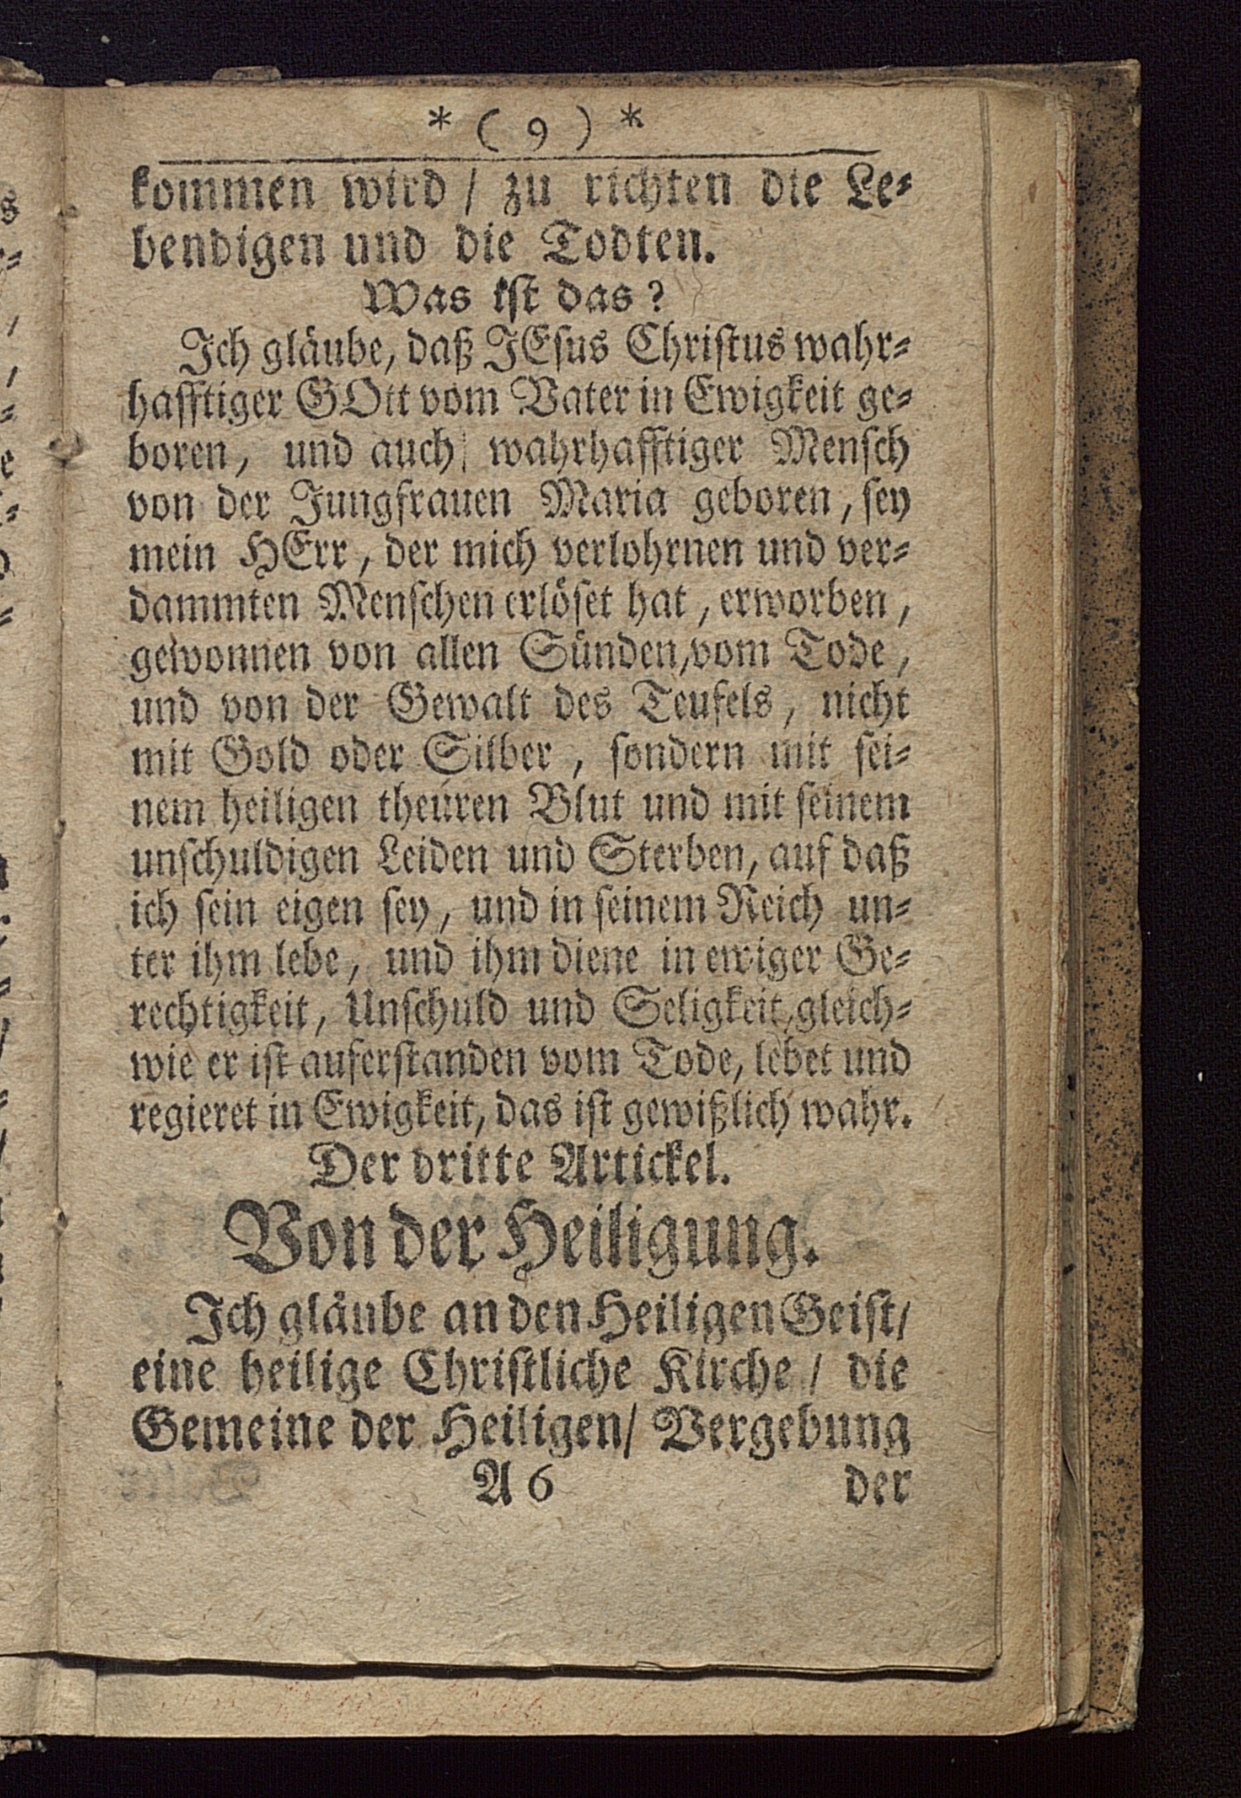 * ( 9 ) *
kommen wird / zu richten die Le⸗
bendigen und die Todten.
Was ist das?
Ich gläube, daß JEsus Christus wahr⸗
hafftiger GOtt vom Vater in Ewigkeit ge⸗
boren, und auch wahrhafftiger Mensch
von der Jungfrauen Maria geboren, sey
mein HErr, der mich verlohrnen und ver⸗
dammten Menschen erlöset hat, erworben,
gewonnen von allen Sünden, vom Tode,
und von der Gewalt des Teufels, nicht
mit Gold oder Silber, sondern mit sei⸗
nem heiligen theuren Blut und mit seinem
unschuldigen Leiden und Sterben, auf daß
ich sein eigen sey, und in seinem Reich un⸗
ter ihm lebe, und ihm diene in ewiger Ge⸗
rechtigkeit, Unschuld und Seligkeit, gleich⸗
wie er ist auferstanden vom Tode, lebet und
regieret in Ewigkeit, das ist gewißlich wahr.
Der dritte Artickel.
Von der Heiligung.
Ich gläube an den Heiligen Geist/
eine heilige Christliche Kirche / die
Gemeine der Heiligen/ Vergebung
A 6 der